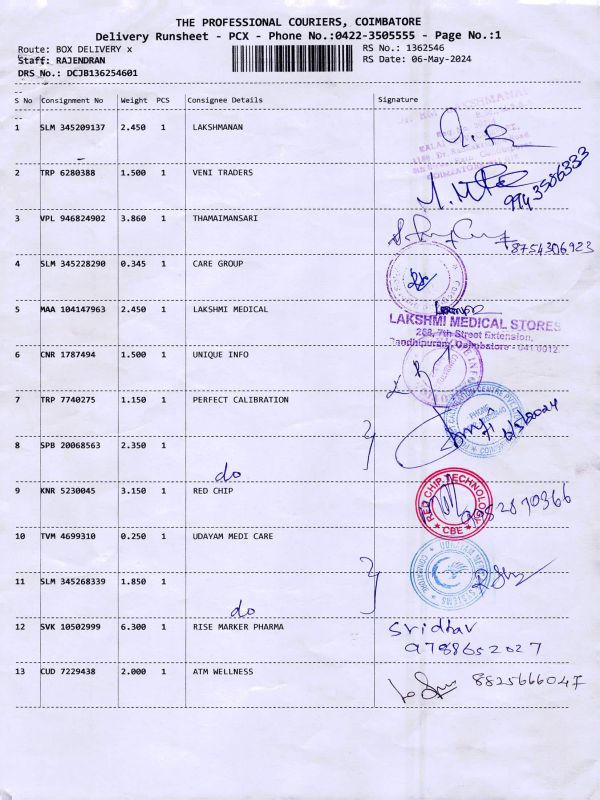 THE PROFESSIONAL COURIERS, COIMBATORE
Delivery Runsheet - PCX - Phone No.:0422-3505555 - Page No.:1
Route: BOX DELIVERY x RS No.: 1362546
Staff: RAJENDRAN RS Date: 06-May-2024
DRS No.: DCJB136254601
S No Consignment No Weight PCS Consignee Details Signature
1 SLM 345209137 2.450 1 LAKSHMANAN
2 TRP 6280388 1.500 1 VENI TRADERS
9943586333
3 VPL 946824902 3.860 1 THAMAIMANSARI
8754306923
4 SLM 345228290 0.345 1 CARE GROUP
5 MAA 104147963 2.450 1 LAKSHMI MEDICAL
LAKSHMI MEDICAL STORES
268, 7th Street Extension,
Gandhipuram, Coimbatore - 641 0012
6 CNR 1787494 1.500 1 UNIQUE INFO
7 TRP 7740275 1.150 1 PERFECT CALIBRATION
6/5/2024
8 SPB 20068563 2.350 1
do
9 KNR 5230045 3.150 1 RED CHIP
RED CHIP TECHNOLOGY
CBE
10 TVM 4699310 0.250 1 UDAYAM MEDI CARE
11 SLM 345268339 1.850 1
do
12 SVK 10502999 6.300 1 RISE MARKER PHARMA Sridhar
9788652027
13 CUD 7229438 2.000 1 ATM WELLNESS 8825666047